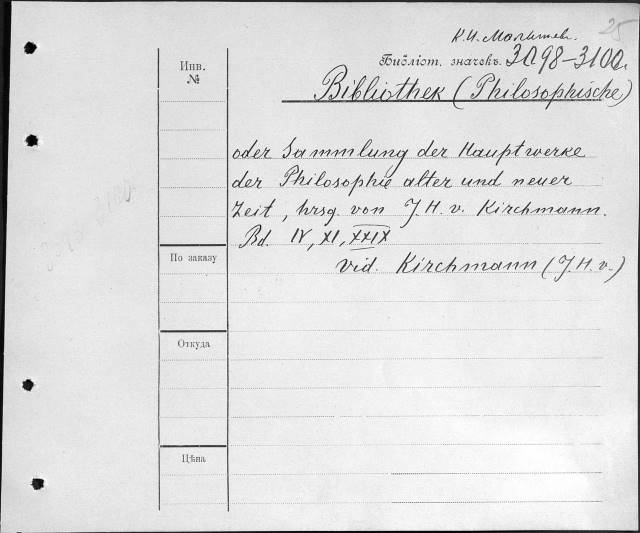 25
К. И. Малышев.
Библіот. значекъ. 3098-3100.
Инв.
№
Bibliothek (Philosophische)
oder Sammlung der Hauptwerke
der Philosophie alter und neuer
Zeit, hrsg. von J. H. v. Kirchmann.
Bd. IV, XI, XXIX
vid. Kirchmann (J. H. v.)
По заказу
Откуда
Цѣна